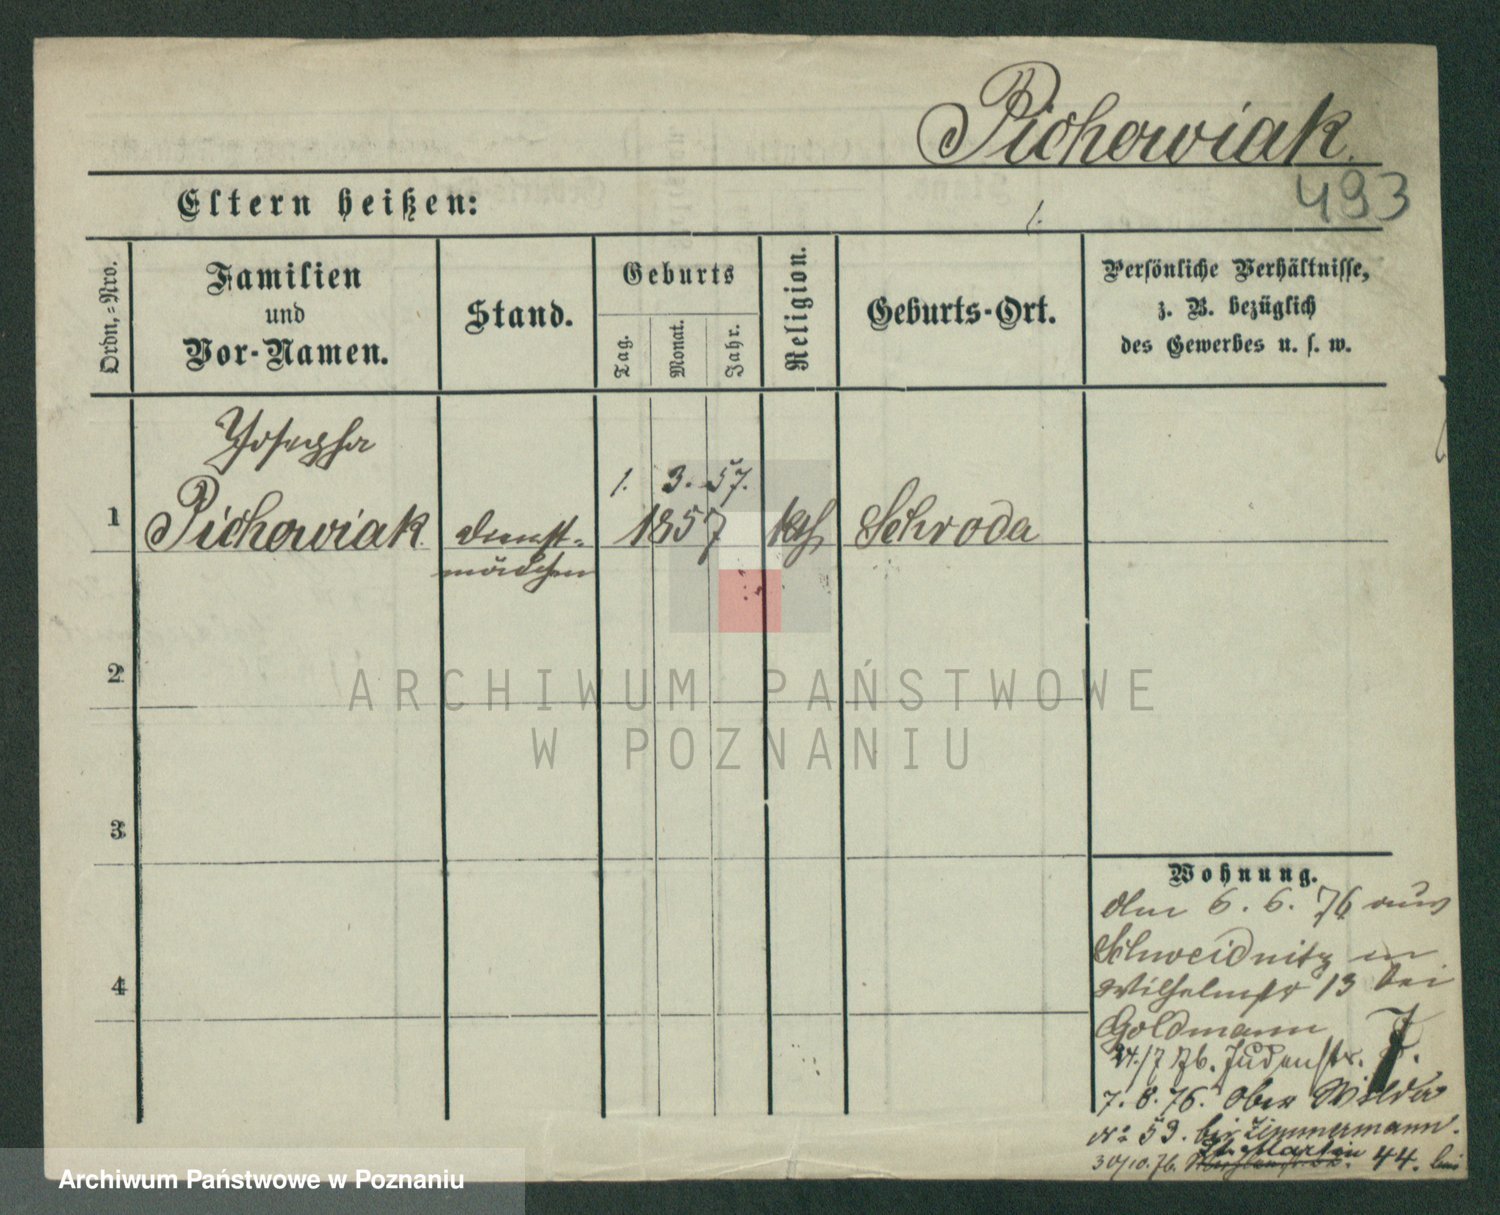 Pichowiak.
493
Eltern heißen:
1.
Ordn.-Nro.
Familien
und
Vor-Namen.
Stand.
Geburts
Tag.
Monat.
Jahr.
Religion.
Geburts-Ort.
Persönliche Verhältnisse,
z. B. bezüglich
des Gewerbes u. s. w.
Josepha
1 Pichowiak.
Dienst-
mädchen
1. 3. 57.
1857
kth
Schroda
2
3
4
Wohnung.
den 6. 6. 76 aus
Schweidnitz in
Wilhelmstr 13 bei
Goldmann
24./7 76. Judenstr. 7.
7. 8. 76. Ober Wilda
No 59. bei Zimmermann.
30/10. 76. St. Martin 44. bei
ARCHIWUM PAŃSTWOWE
W POZNANIU
Archiwum Państwowe w Poznaniu